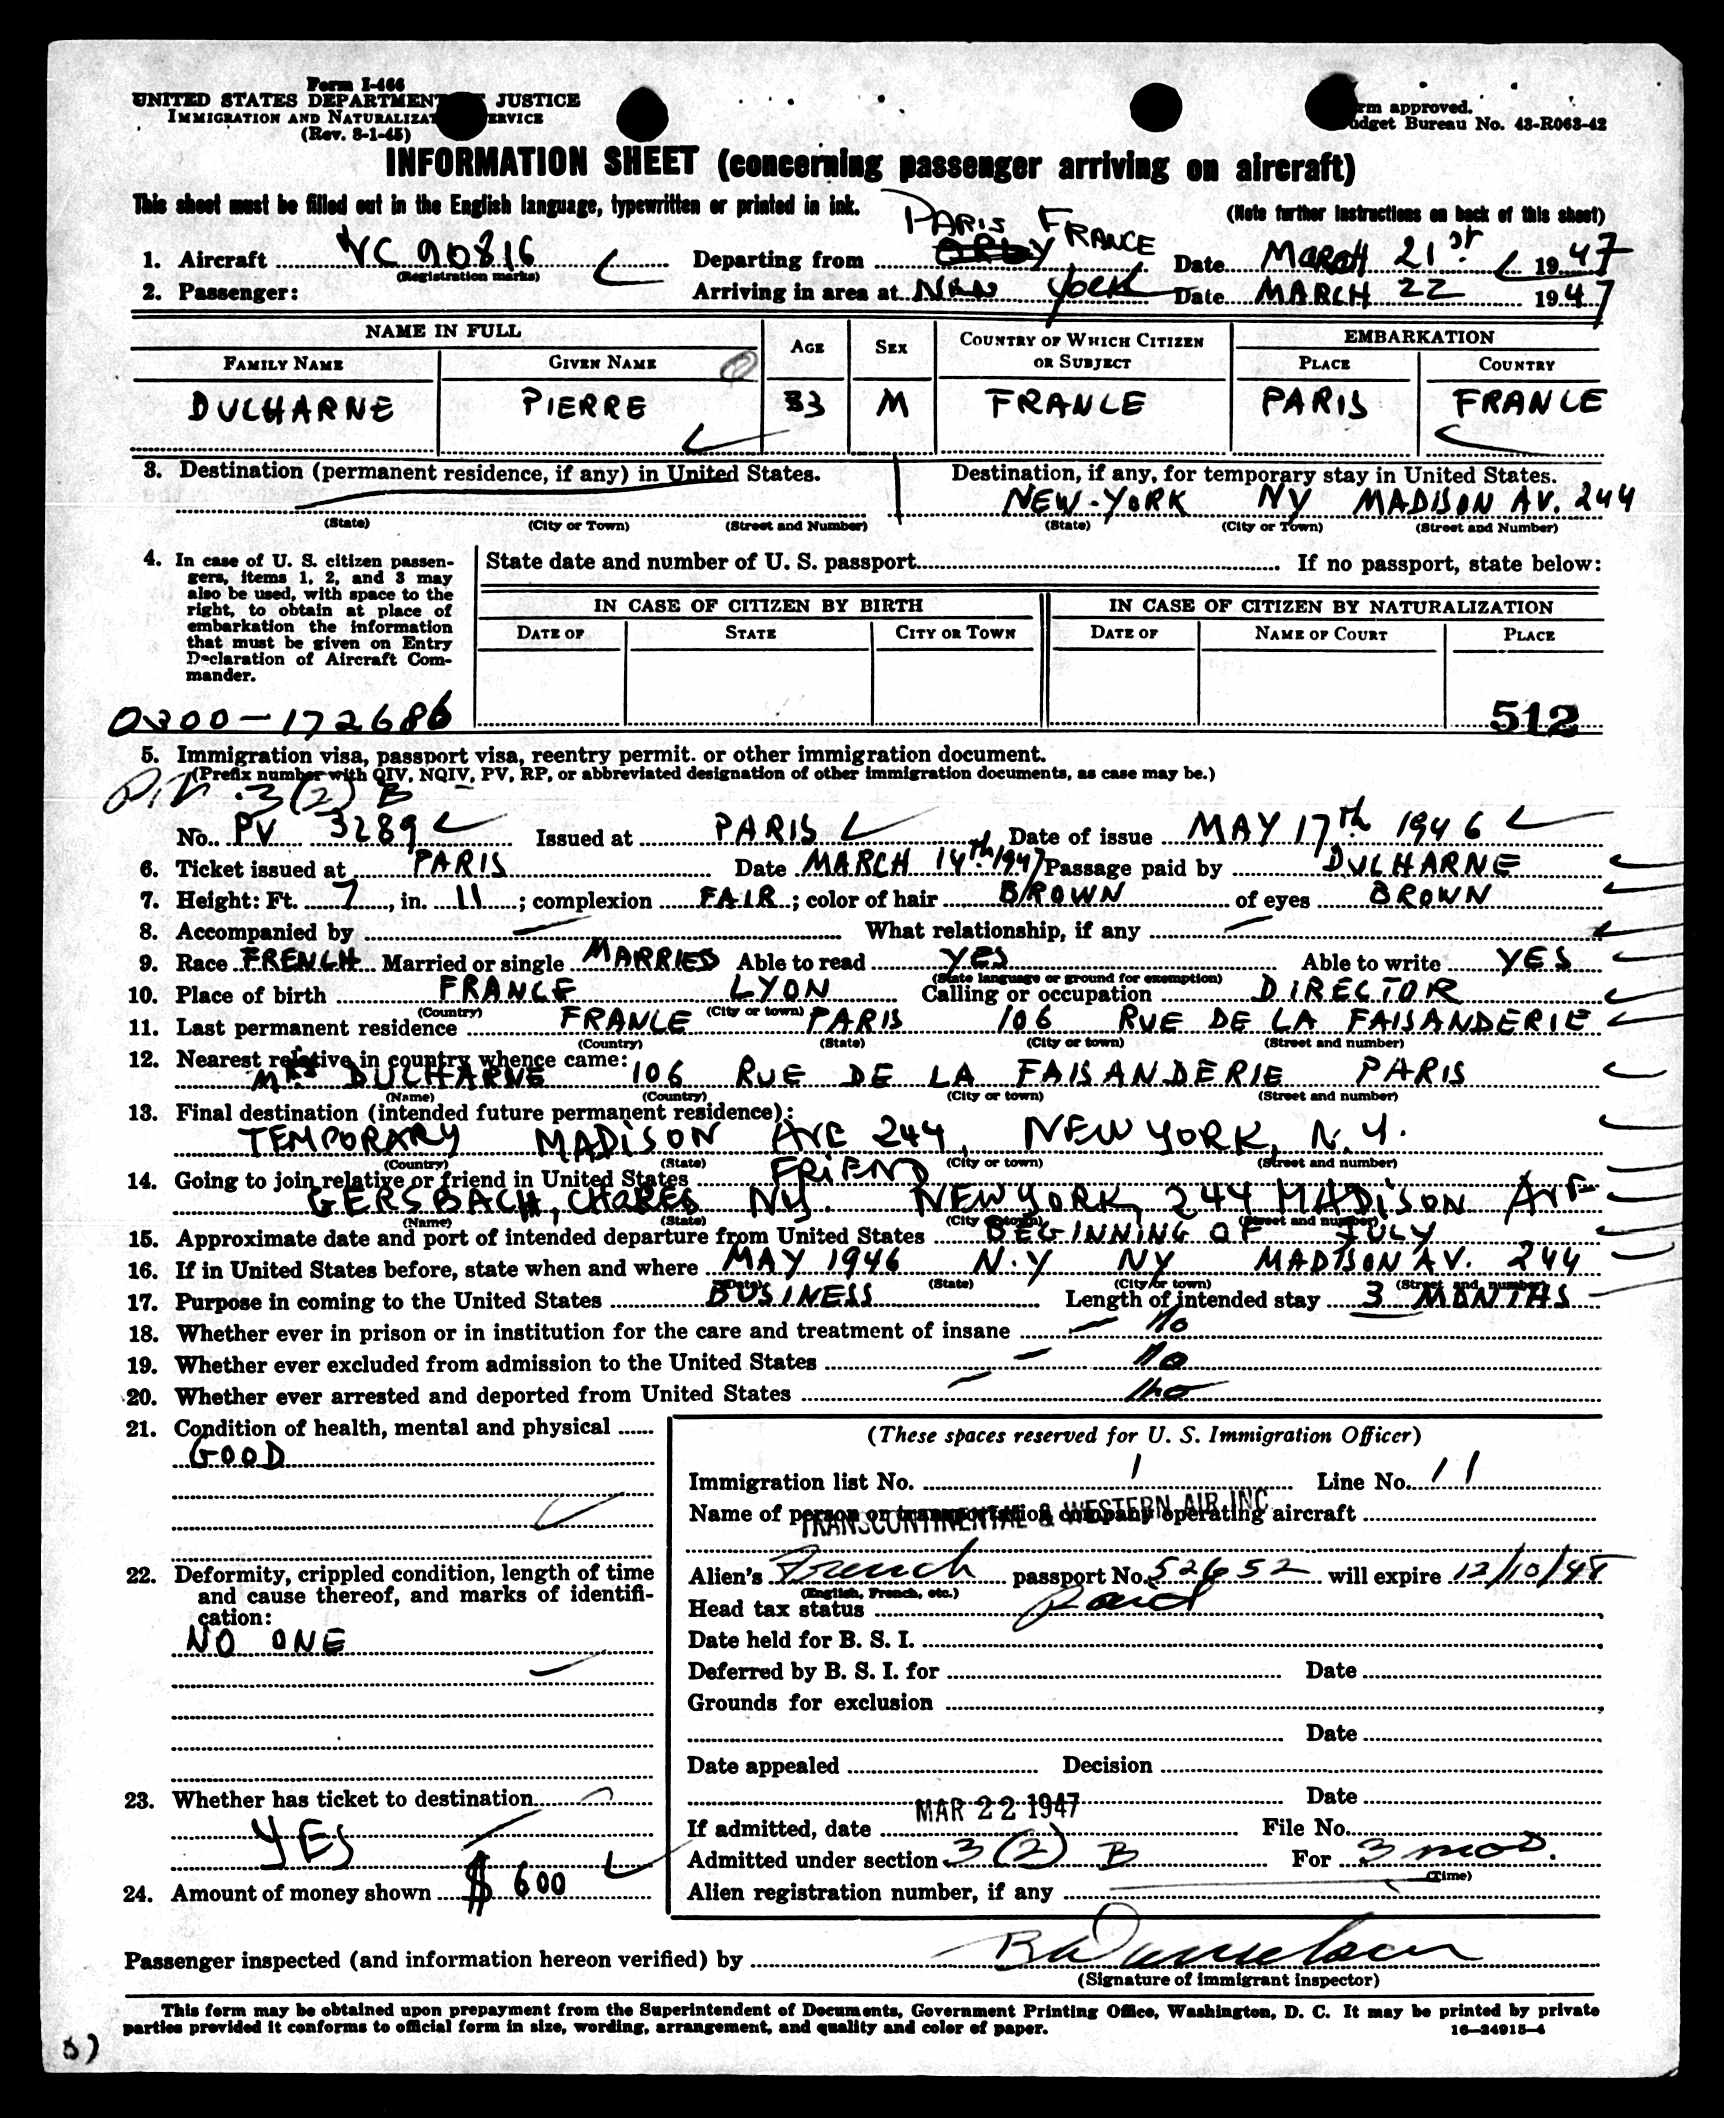 Form I-466
UNITED STATES DEPARTMENT JUSTICE
IMMIGRATION AND NATURALIZAT ERVICE
(Rev. 8-1-45)
rm approved.
udget Bureau No. 43-R063-42
INFORMATION SHEET (concerning passenger arriving on aircraft)
This sheet must be filled out in the English language, typewritten or printed in ink.
(Note further instructions on back of this sheet)
PARIS FRANCE
1. Aircraft NC 90816 Departing from ORLY Date MARCH 21st 1947
(Registration marks)
2. Passenger: Arriving in area at NEW YORK Date MARCH 22 1947
NAME IN FULL AGE SEX COUNTRY OF WHICH CITIZEN OR SUBJECT EMBARKATION
FAMILY NAME GIVEN NAME PLACE COUNTRY
DUCHARNE PIERRE 33 M FRANCE PARIS FRANCE
3. Destination (permanent residence, if any) in United States. Destination, if any, for temporary stay in United States.
NEW-YORK NY MADISON AV. 244
(State) (City or Town) (Street and Number) (State) (City or Town) (Street and Number)
4. In case of U. S. citizen passen-
gers, items 1, 2, and 3 may
also be used, with space to the
right, to obtain at place of
embarkation the information
that must be given on Entry
Declaration of Aircraft Com-
mander.
State date and number of U. S. passport If no passport, state below:
IN CASE OF CITIZEN BY BIRTH IN CASE OF CITIZEN BY NATURALIZATION
DATE OF STATE CITY OR TOWN DATE OF NAME OF COURT PLACE
0300-172686
512
5. Immigration visa, passport visa, reentry permit. or other immigration document.
(Prefix number with QIV, NQIV, PV, RP, or abbreviated designation of other immigration documents, as case may be.)
3(2) B
No. PV 3289 Issued at PARIS Date of issue MAY 17th 1946
6. Ticket issued at PARIS Date MARCH 14th 1947 Passage paid by DUCHARNE
7. Height: Ft. 7, in. 11; complexion FAIR; color of hair BROWN of eyes BROWN
8. Accompanied by — What relationship, if any —
9. Race FRENCH Married or single MARRIED Able to read YES Able to write YES
(State language or ground for exemption)
10. Place of birth FRANCE LYON Calling or occupation DIRECTOR
(Country) (City or town)
11. Last permanent residence FRANCE PARIS 106 RUE DE LA FAISANDERIE
(Country) (State) (City or town) (Street and number)
12. Nearest relative in country whence came:
MRS DUCHARNE 106 RUE DE LA FAISANDERIE PARIS
(Name) (Country) (City or town) (Street and number)
13. Final destination (intended future permanent residence):
TEMPORARY MADISON AVE 244, NEW YORK, N.Y.
(Country) (State) (City or town) (Street and number)
14. Going to join relative or friend in United States FRIEND
GERSBACH, NY. NEW YORK, 244 MADISON AVE
(Name) (State) (City or town) (Street and number)
15. Approximate date and port of intended departure from United States BEGINNING OF JULY
16. If in United States before, state when and where MAY 1946 N.Y NY MADISON AV. 244
(Date) (State) (City or town) (Street and number)
17. Purpose in coming to the United States BUSINESS Length of intended stay 3 MONTHS
18. Whether ever in prison or in institution for the care and treatment of insane — no
19. Whether ever excluded from admission to the United States — no
20. Whether ever arrested and deported from United States — no
21. Condition of health, mental and physical
GOOD
22. Deformity, crippled condition, length of time
and cause thereof, and marks of identifi-
cation:
NO ONE
23. Whether has ticket to destination
YES
24. Amount of money shown $ 600
(These spaces reserved for U. S. Immigration Officer)
Immigration list No. 1 Line No. 11
Name of person or transportation company operating aircraft
TRANSCONTINENTAL & WESTERN AIR INC
Alien's French passport No. 52652 will expire 12/10/48
(English, French, etc.)
Head tax status Paid
Date held for B. S. I.
Deferred by B. S. I. for Date
Grounds for exclusion
Date
Date appealed Decision
Date
MAR 22 1947
If admitted, date File No.
Admitted under section 3(2) B For 3 mos.
(Time)
Alien registration number, if any
Passenger inspected (and information hereon verified) by
(Signature of immigrant inspector)
This form may be obtained upon prepayment from the Superintendent of Documents, Government Printing Office, Washington, D. C. It may be printed by private
parties provided it conforms to official form in size, wording, arrangement, and quality and color of paper.
16—24915-4